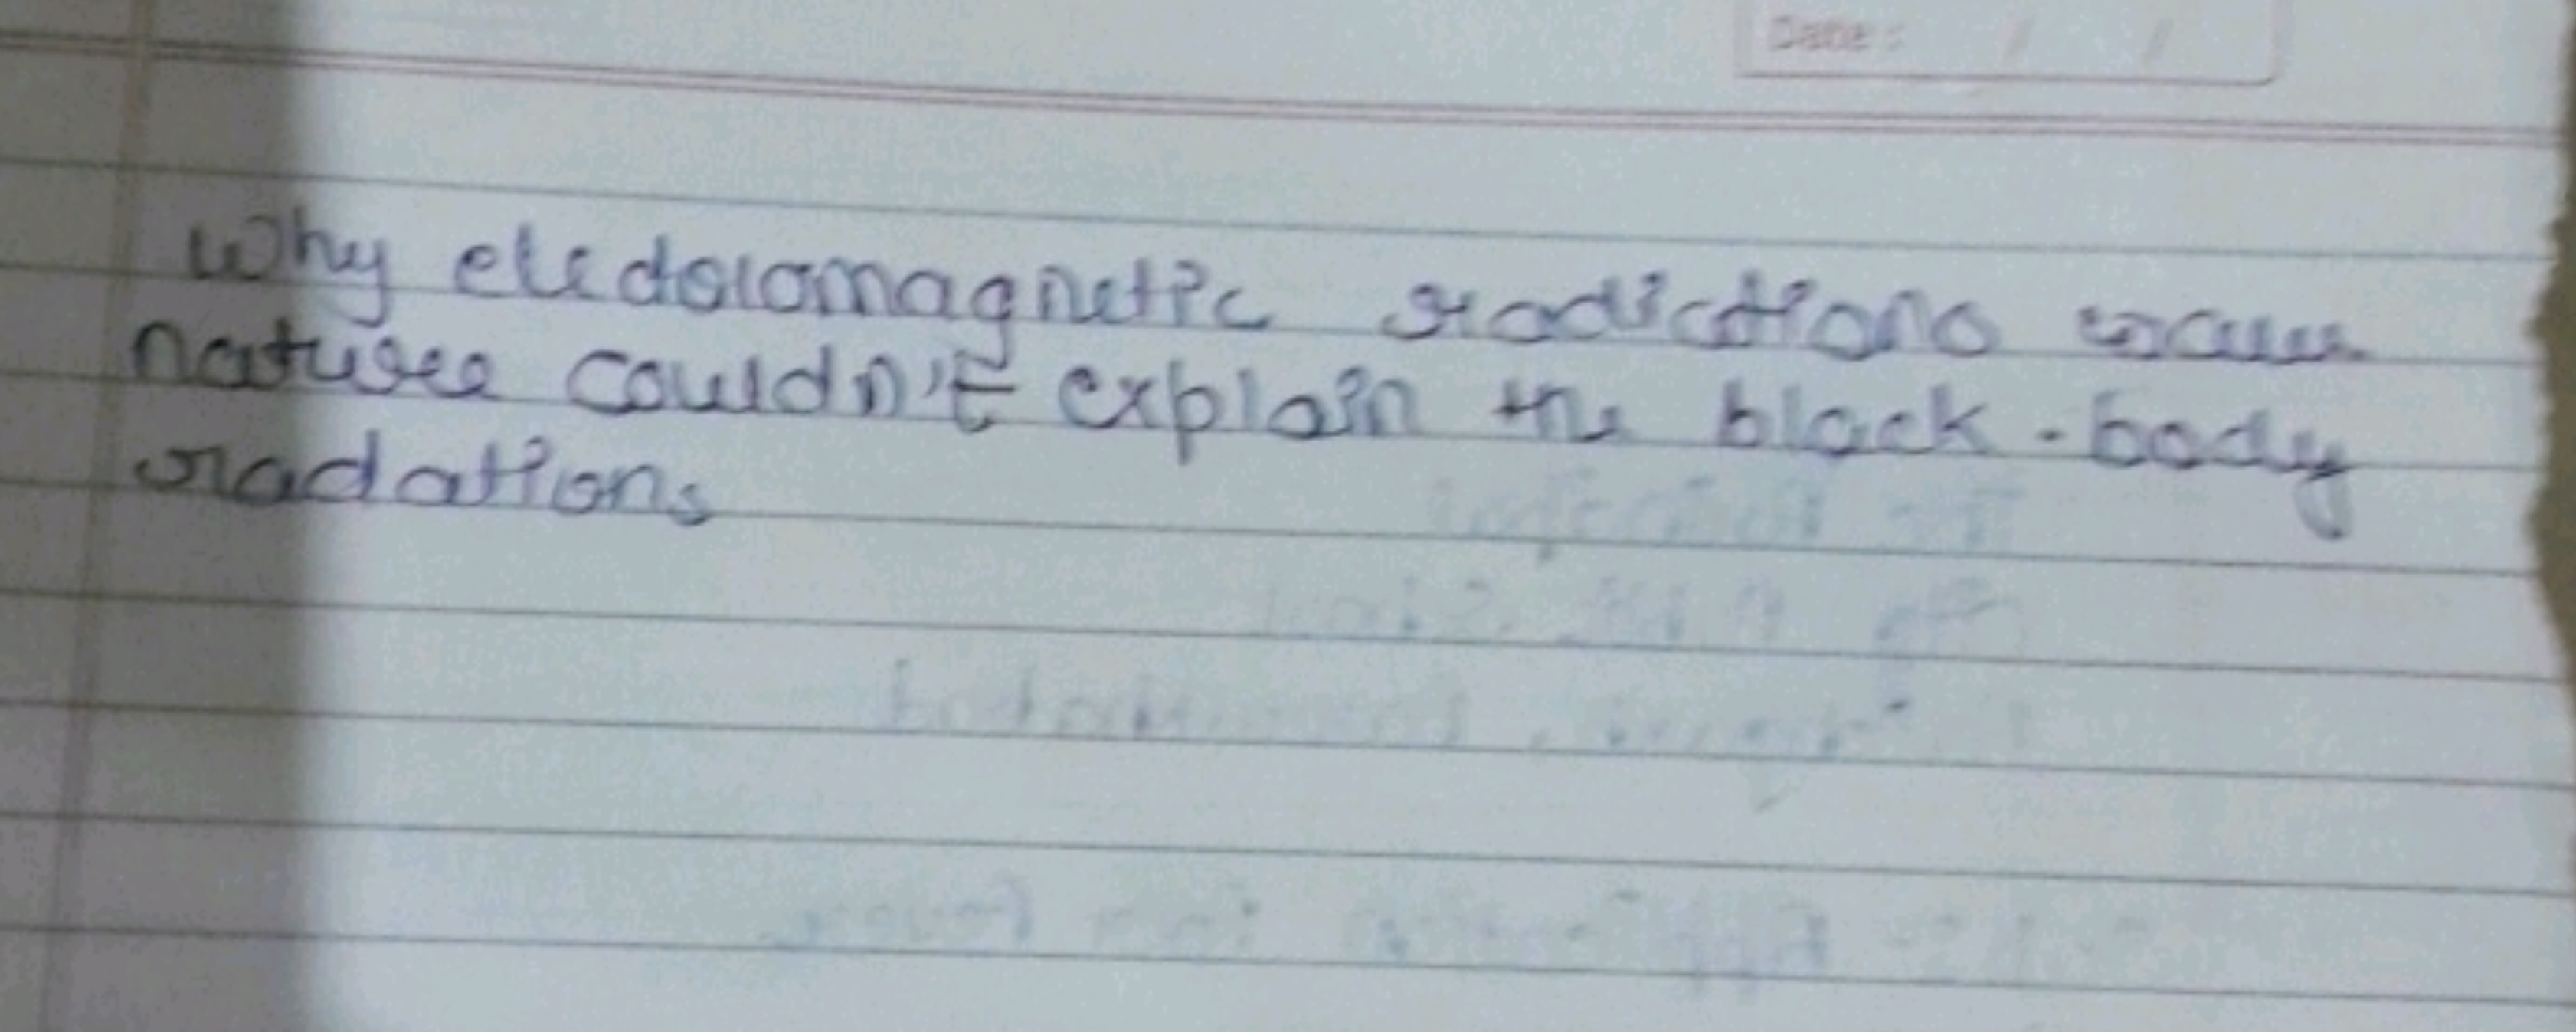 Date : / /
Why electromagnetic radictions wave
nature couldn't explain the black-body
radations